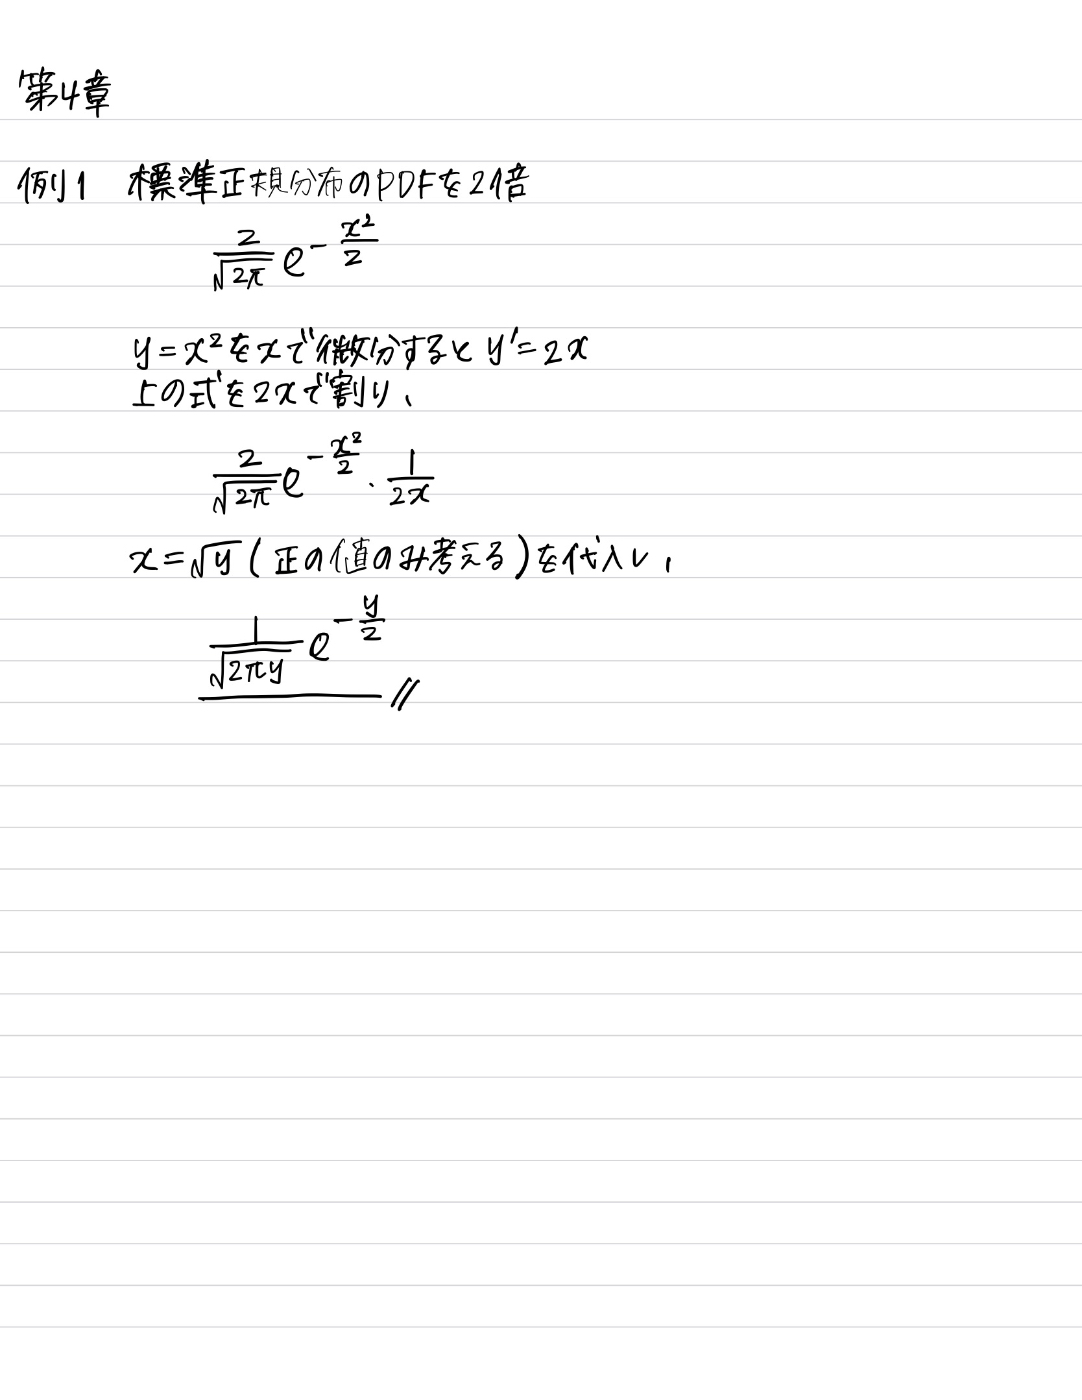 第4章
例1 標準正規分布のPDFを2倍
\frac{2}{\sqrt{2π}} e^{-\frac{x^2}{2}}
y=x²をxで微分するとy'=2x
上の式を2xで割り、
\frac{2}{\sqrt{2π}} e^{-\frac{x^2}{2}} · \frac{1}{2x}
x=√y(正の値のみ考える)を代入し、
\frac{1}{\sqrt{2πy}} e^{-\frac{y}{2}} //